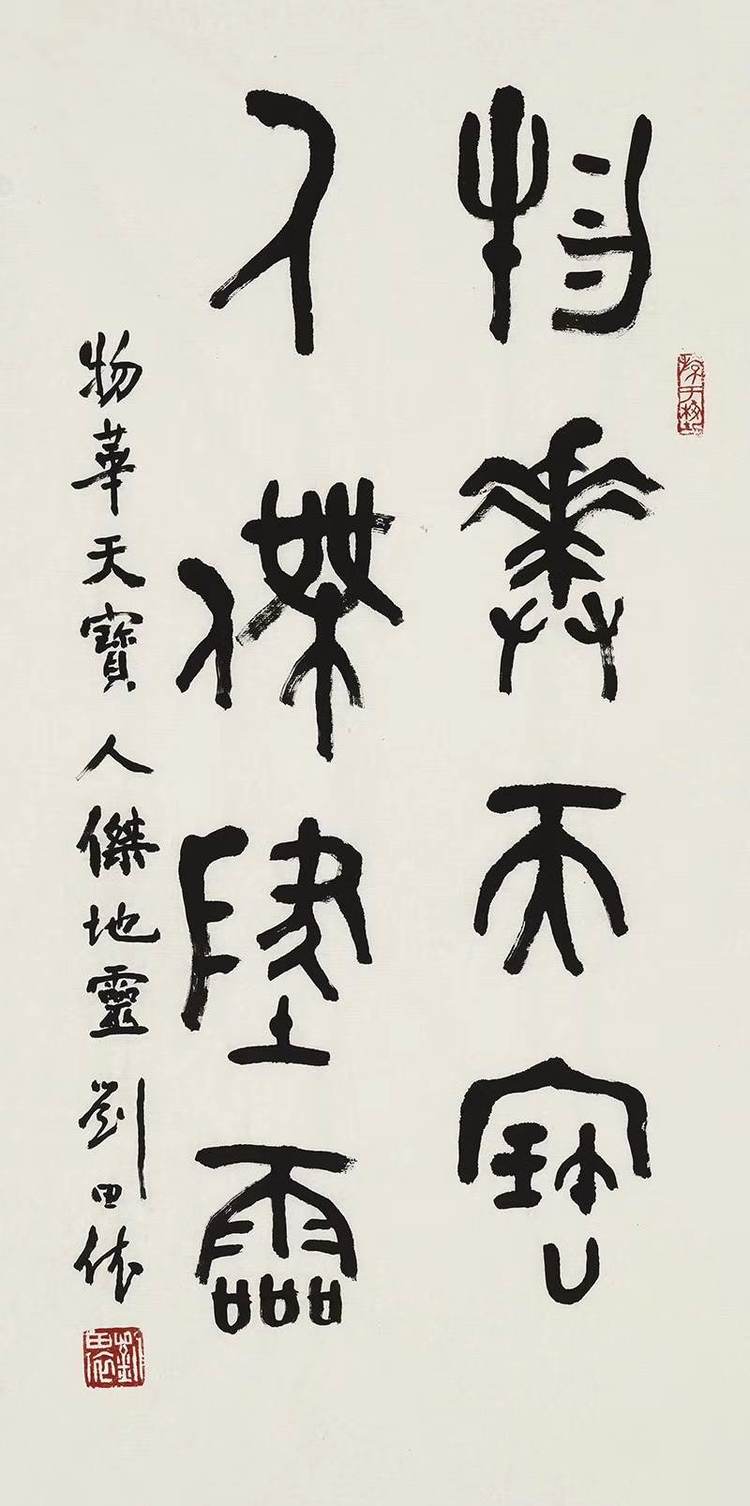 物華天寶
人傑地靈
物華天寶 人傑地靈 劉田依